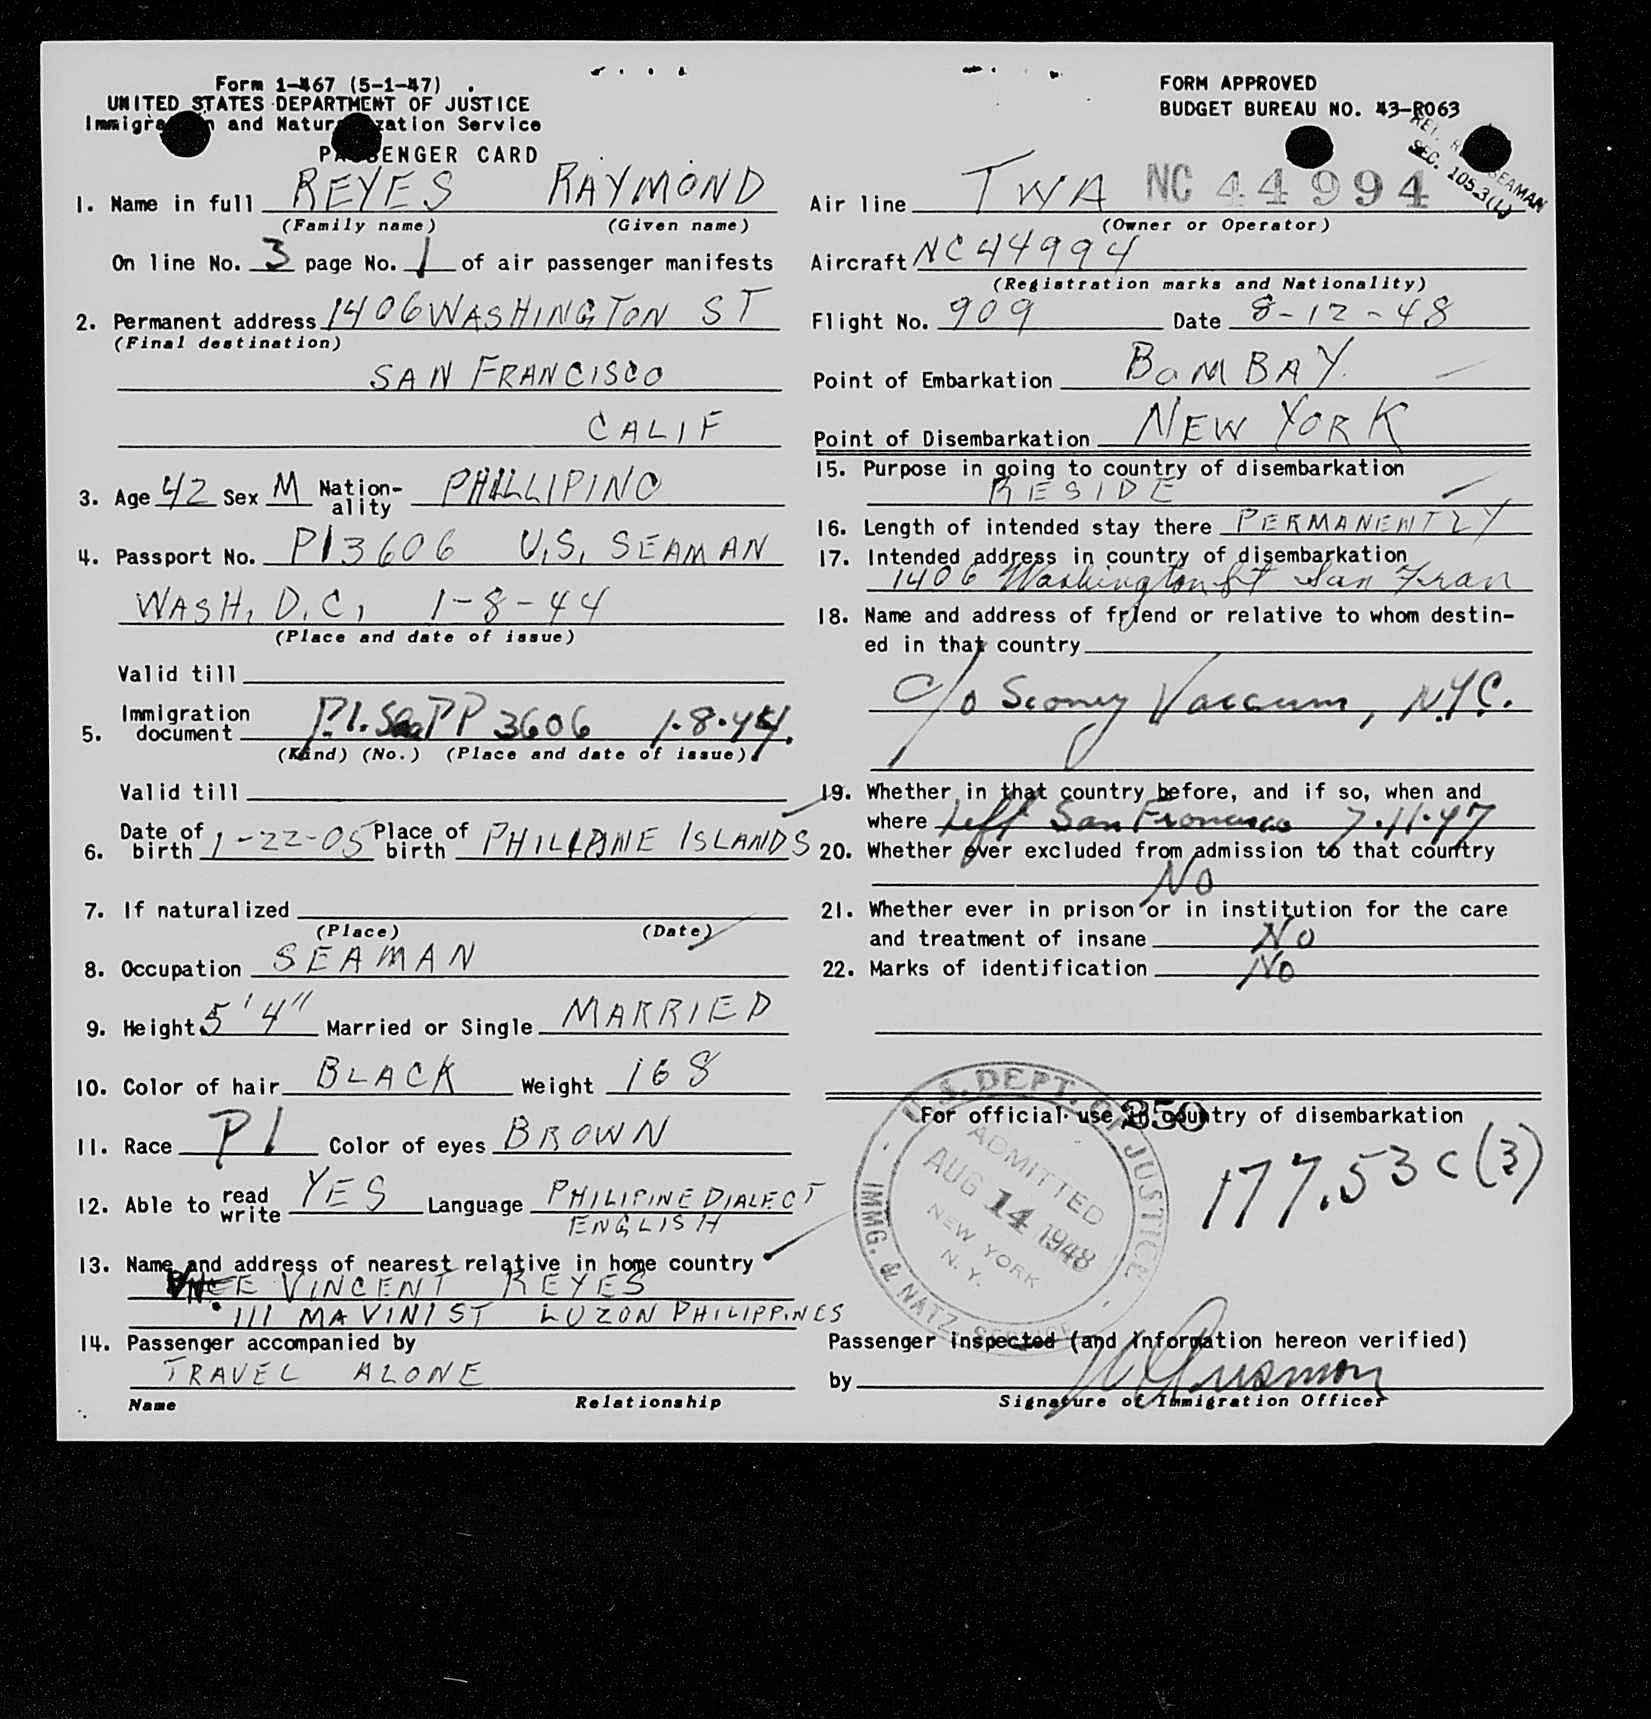 Form I-467 (5-1-47)
UNITED STATES DEPARTMENT OF JUSTICE
and Service
CARD
1. Name in full REYES RAYMOND
(Family name) (Given name)
On line No. 3 page No. 1 of air passenger manifests
2. Permanent address 1406 WASHINGTON ST
(Final destination)
SAN FRANCISCO
CALIF
3. Age 42 Sex M Nation-ality PHILLIPINO
4. Passport No. PI3606 U.S. SEAMAN
WASH, D.C, 1-8-44
(Place and date of issue)
Valid till
5. Immigration document P.I. Sea PP 3606 1.8.44.
(Kind) (No.) (Place and date of issue)
Valid till
6. Date of birth 1-22-05 Place of birth ISLANDS
7. If naturalized
(Place) (Date)
8. Occupation SEAMAN
9. Height 5'4" Married or Single MARRIED
10. Color of hair BLACK Weight 168
11. Race PI Color of eyes BROWN
12. Able to read write YES Language PHILIPINE DIALECT
ENGLISH
13. Name and address of nearest relative in home country
VINCENT REYES
111 MAVINI ST LUZON PHILIPPINES
14. Passenger accompanied by
TRAVEL ALONE
Name Relationship
FORM APPROVED
BUDGET BUREAU NO. 43-R063
RET. SEAMAN
SEC. 105.3(L)
Air line TWA NC 44994
(Owner or Operator)
Aircraft NC44994
(Registration marks and Nationality)
Flight No. 909 Date 8-12-48
Point of Embarkation BOMBAY
Point of Disembarkation NEW YORK
15. Purpose in going to country of disembarkation
RESIDE
16. Length of intended stay there PERMANENTLY
17. Intended address in country of disembarkation
1406 Washington St San Fran
18. Name and address of friend or relative to whom destin-
ed in that country
c/o Sconey Vaccum, N.Y.C.
19. Whether in that country before, and if so, when and
where Left San Francisco 7.11.47
20. Whether ever excluded from admission to that country
No
21. Whether ever in prison or in institution for the care
and treatment of insane No
22. Marks of identification No
For official use in country of disembarkation
350
177.53c(3)
U.S. DEPT. OF JUSTICE
IMMG. & NATZ. SERVICE
ADMITTED
AUG 14 1948
NEW YORK
N.Y.
Passenger inspected (and information hereon verified)
by
Signature of Immigration Officer